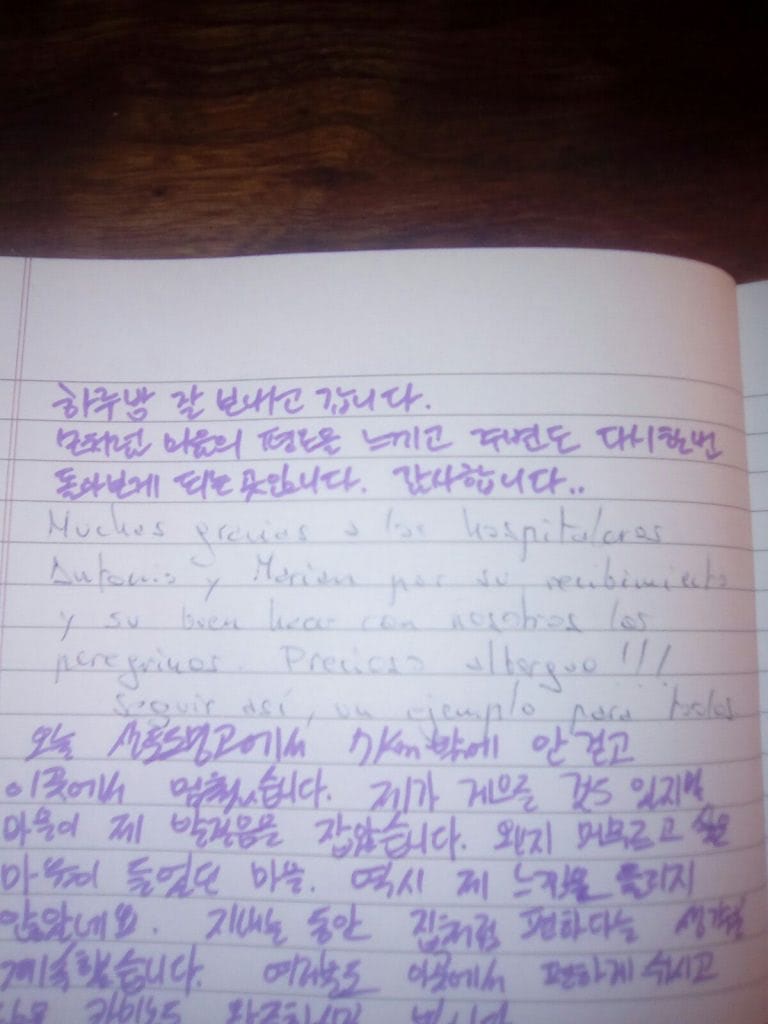 하루밤 잘 보내고 갑니다.
마음의 평온을 느끼고 주변도 다시한번
돌아보게 되는 곳입니다. 감사합니다..
Muchas gracias a los hospitaleros
Antonio y Marian por su recibimiento
y su buen hacer con nosotros los
peregrinos. Precioso albergue!!!
Seguir así, un ejemplo para todos
오늘 7km 밖에 안 걷고
이곳에서 멈췄습니다. 제가 게으른 것도 있지만
마을이 제 발걸음을 잡았습니다. 왠지 머무르고 싶은
마음이 들었던 마을. 역시 제 느낌은 틀리지
않았네요. 지내는 동안 집처럼 편하다는 생각을
계속했습니다. 여러분도 이곳에서 편하게 쉬시고